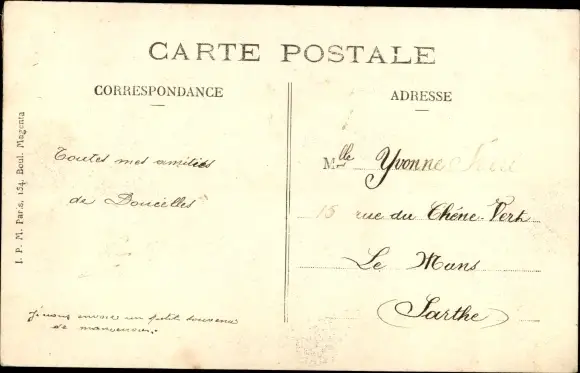 CARTE POSTALE
CORRESPONDANCE
ADRESSE
Toutes mes amitiés
de Doucelles
Je vous envoie un petit souvenir
de
Mlle Yvonne
15 rue du Chêne-Vert
Le Mans
(Sarthe)
I. P. M. Paris, 154, Boul. Magenta